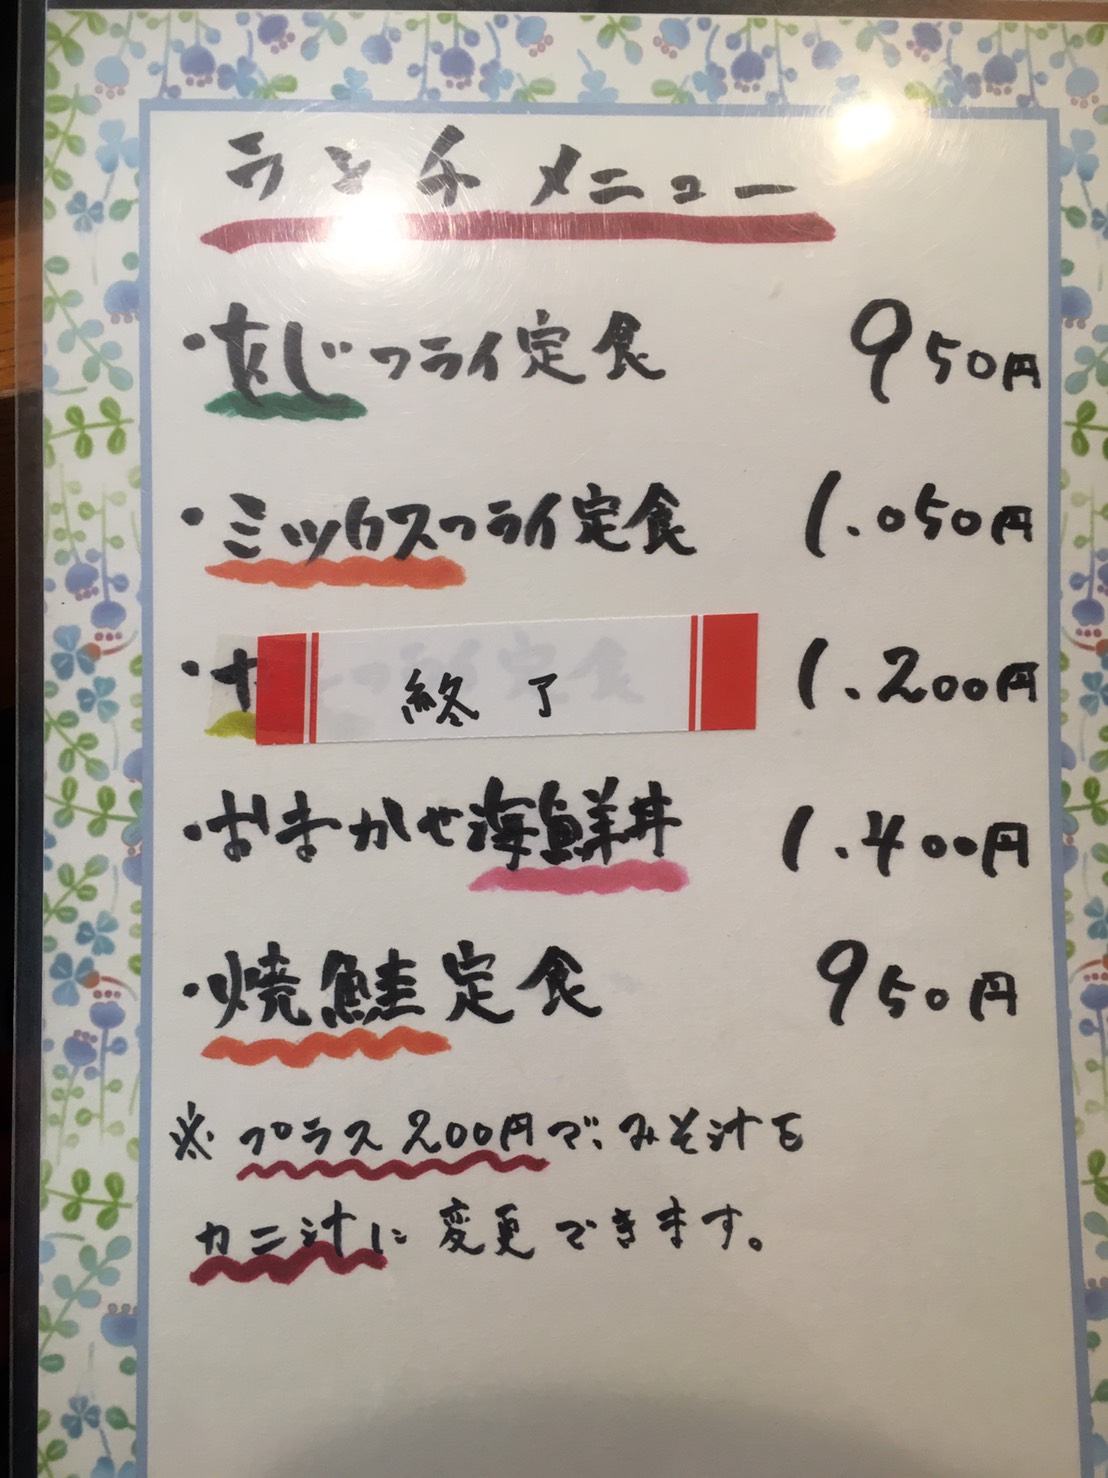 ランチメニュー
・あじフライ定食 950円
・ミックスフライ定食 1.050円
・カキフライ定食 終了 1.200円
・おまかせ海鮮丼 1.400円
・焼鮭定食 950円
※プラス200円で、みそ汁を
カニ汁に変更できます。